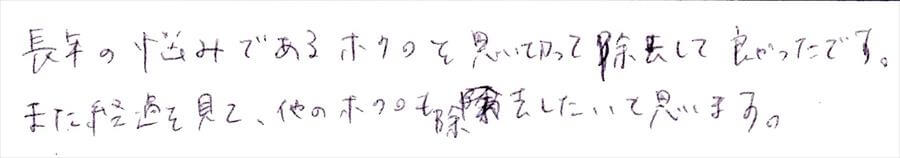 長年の悩みであるホクロを思い切って除去して良かったです。
また経過を見て、他のホクロも除去したいと思います。